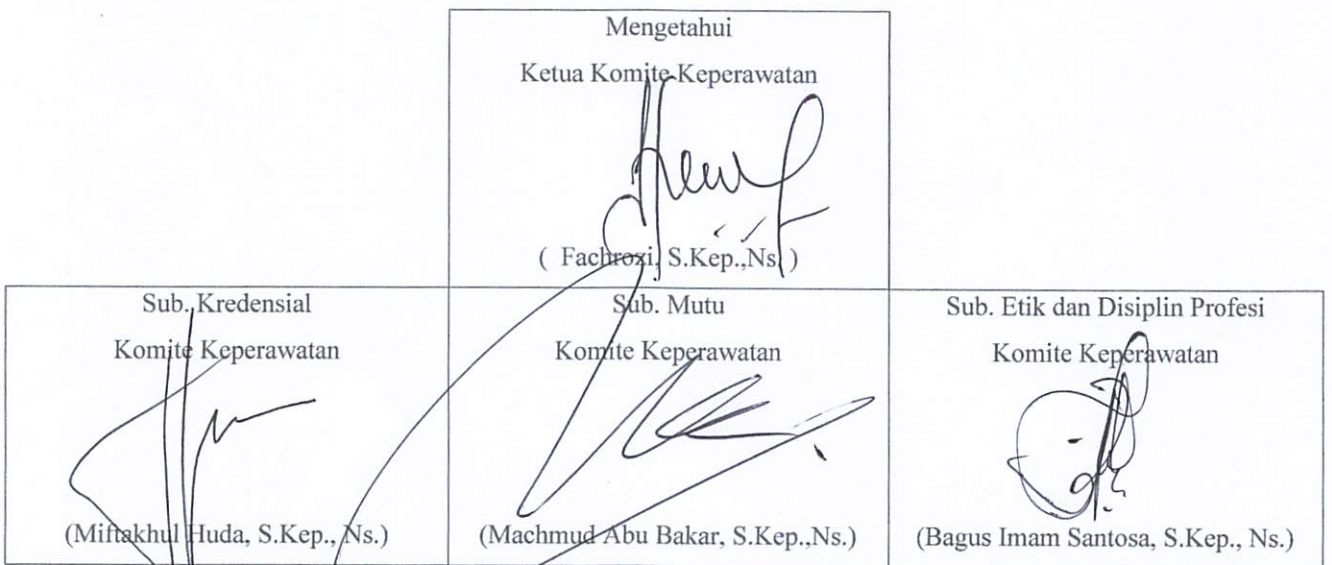 Mengetahui
Ketua Komite Keperawatan
( Fachrozi, S.Kep.,Ns. )
Sub. Kredensial
Komite Keperawatan
(Miftakhul Huda, S.Kep., Ns.)
Sub. Mutu
Komite Keperawatan
(Machmud Abu Bakar, S.Kep.,Ns.)
Sub. Etik dan Disiplin Profesi
Komite Keperawatan
(Bagus Imam Santosa, S.Kep., Ns.)